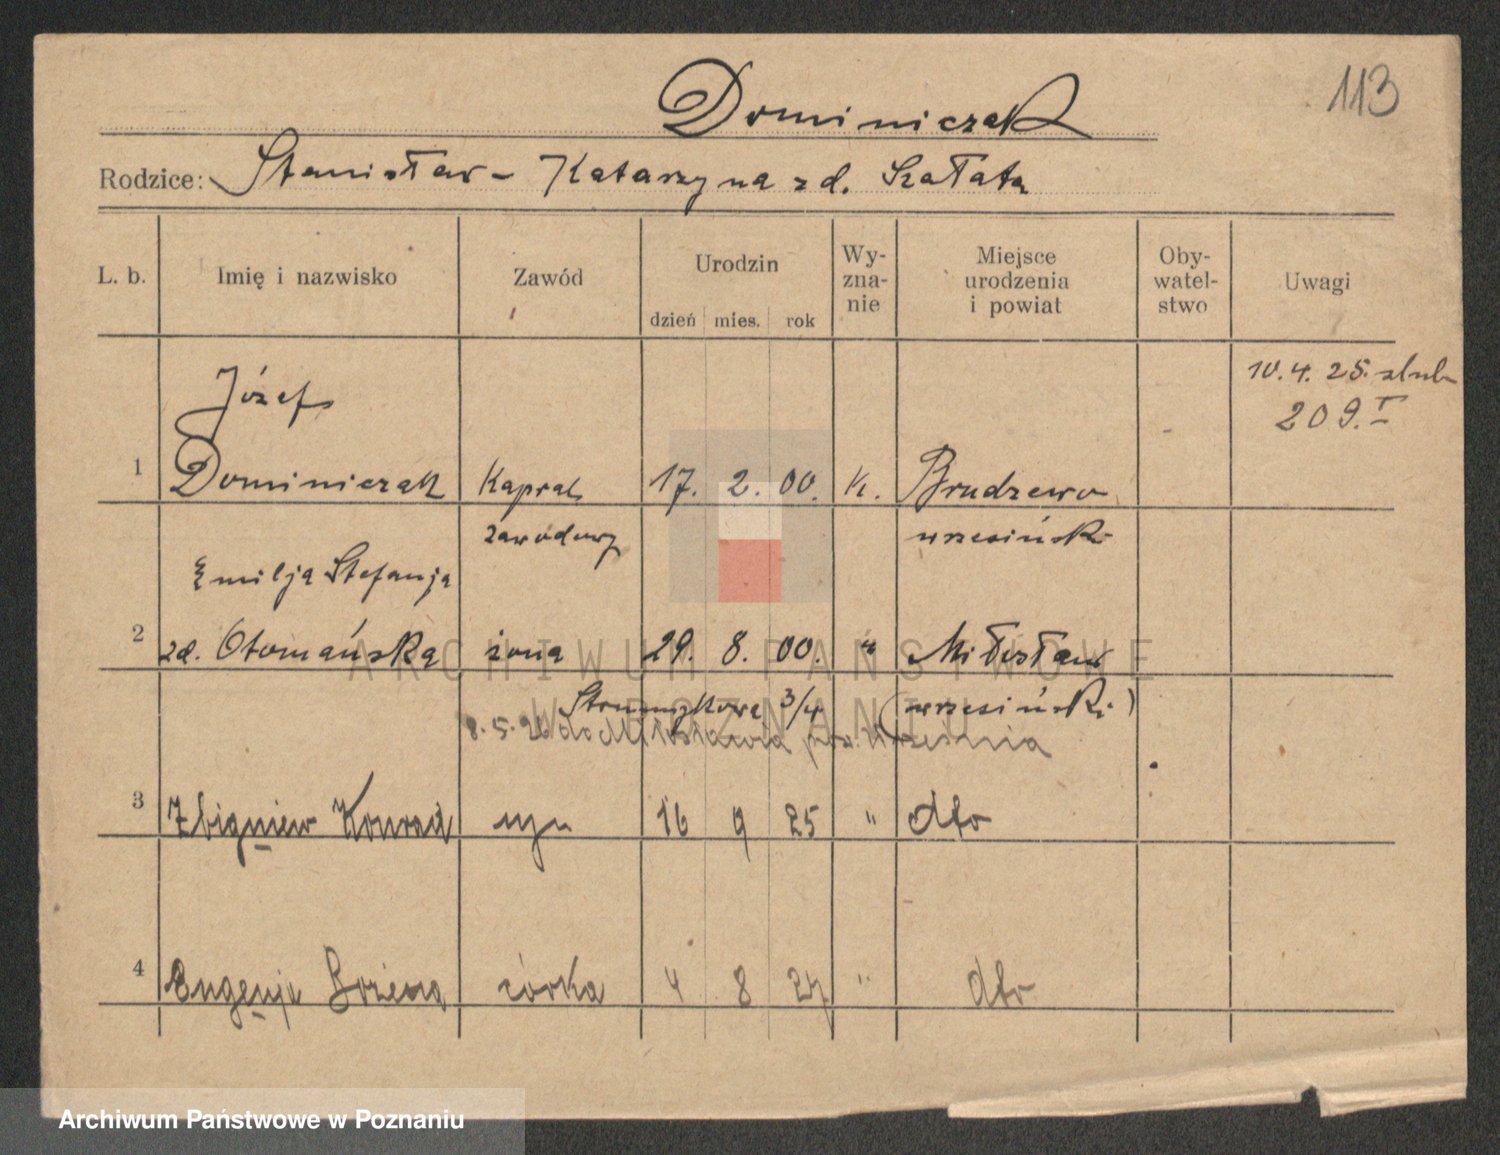 113
Dominiczak
Rodzice: Stanisław - Katarzyna zd. Szałata
L. b. Imię i nazwisko Zawód Urodzin dzień mies. rok Wy-zna-nie Miejsce urodzenia i powiat Oby-watel-stwo Uwagi
10.4.25. ślub
209.I
Józef
1 Dominiczak Kapral 17. 2. 00. K. Brudzewo
zawodowy wrzesiński
Emilja Stefanja
2 zd. Otomańska żona 29. 8. 00. " Miłosław
Strumykowa 3/4 (wrzesiński)
8.5.26 do Miłosławia pow. Września
3 Zbigniew Konrad syn 16 9 25 " dto
4 Eugenja Bożena córka 4 8 27 " dto
ARCHIWUM PAŃSTWOWE
W POZNANIU
Archiwum Państwowe w Poznaniu